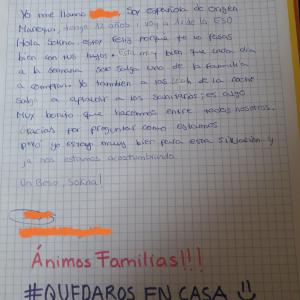 Yo me llamo Soy española de origen
Marroquí, tengo 12 años y voy a 1º de la ESO
Hola Sokna, estoy feliz porque te lo pasas
bien con tus hijos. Esta muy bien que cada día
a la semana solo salga uno de la familia
a comprar. Yo también a las de la noche
Salgo a aplaudir a los sanitarios, es algo
Muy bonito que hacemos entre todos nosotros.
Gracias por preguntar como estamos
pero yo estoy muy bien para esta situación y
ya nos estamos acostumbrando.
Un Beso, Sokna!
Ánimos Familias!!!
#QUEDAROS EN CASA